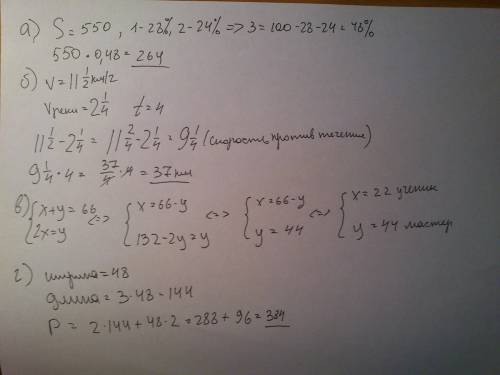 а) S = 550, 1-28%, 2-24% => 3 = 100-28-24 = 48%
550 · 0,48 = 264
б) v = 11 1/2 км/ч
Vреки = 2 1/4 t = 4
11 1/2 - 2 1/4 = 11 2/4 - 2 1/4 = 9 1/4 (скорость против течение)
9 1/4 · 4 = 37/4 · 4 = 37 км
в) { x+y = 66 <=> { x = 66-y <=> { x = 66-y <=> { x = 22 ученик
2x = y 132-2y = y y = 44 y = 44 мастер
г) ширина = 48
длина = 3·48 = 144
P = 2·144 + 48·2 = 288 + 96 = 384